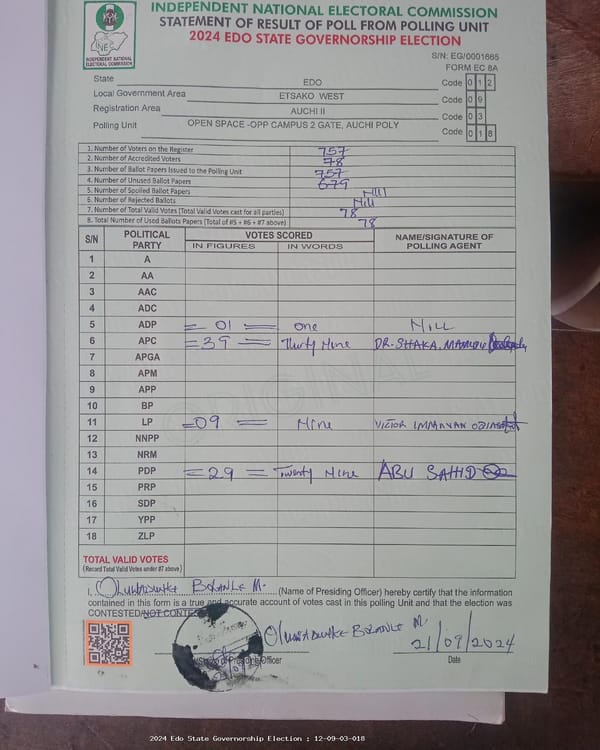 INDEPENDENT NATIONAL ELECTORAL COMMISSION
STATEMENT OF RESULT OF POLL FROM POLLING UNIT
2024 EDO STATE GOVERNORSHIP ELECTION
INDEPENDENT NATIONAL ELECTORAL COMMISSION
S/N: EG/0001665
FORM EC 8A
State EDO Code 0 1 2
Local Government Area ETSAKO WEST Code 0 9
Registration Area AUCHI II Code 0 3
Polling Unit OPEN SPACE -OPP CAMPUS 2 GATE, AUCHI POLY Code 0 1 8
1. Number of Voters on the Register 757
2. Number of Accredited Voters 78
3. Number of Ballot Papers Issued to the Polling Unit 757
4. Number of Unused Ballot Papers 679
5. Number of Spoiled Ballot Papers Nill
6. Number of Rejected Ballots Nill
7. Number of Total Valid Votes (Total Valid Votes cast for all parties) 78
8. Total Number of Used Ballots Papers (Total of #5 + #6 + #7 above) 78
S/N POLITICAL PARTY VOTES SCORED NAME/SIGNATURE OF POLLING AGENT
IN FIGURES IN WORDS
1 A
2 AA
3 AAC
4 ADC
5 ADP = 01 = one NILL
6 APC = 39 = Thirty Nine DR. SHAKA.
7 APGA
8 APM
9 APP
10 BP
11 LP = 09 = Nine VICTOR
12 NNPP
13 NRM
14 PDP = 29 = Twenty Nine ABU SAHID
15 PRP
16 SDP
17 YPP
18 ZLP
TOTAL VALID VOTES
(Record Total Valid Votes under #7 above)
I. OLUWADUNKE BOLANLE M. (Name of Presiding Officer) hereby certify that the information
contained in this form is a true and accurate account of votes cast in this polling Unit and that the election was
CONTESTED/NOT CONTESTED
OLUWADUNKE BOLANLE M. 21/09/2024
Presiding Officer Date
ORIGINAL
2024 Edo State Governorship Election : 12-09-03-018